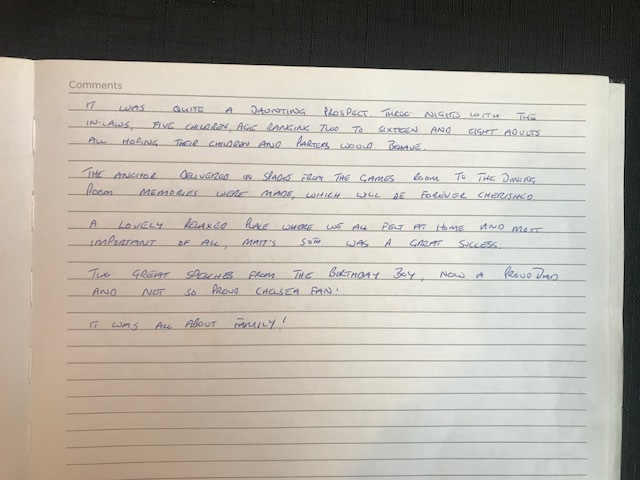 Comments
IT WAS QUITE A DAUNTING PROSPECT. THREE NIGHTS WITH THE
IN-LAWS, FIVE CHILDREN, AGE RANGING TWO TO SIXTEEN AND EIGHT ADULTS
ALL HOPING THEIR CHILDREN AND PARTERS WOULD BEHAVE.
THE ANCHOR DELIVERED IN SPADES FROM THE GAMES ROOM TO THE DINING
ROOM MEMORIES WERE MADE, WHICH WILL BE FOREVER CHERISHED
A LOVELY RELAXED PLACE WHERE WE ALL FELT AT HOME AND MOST
IMPORTANT OF ALL, MATT'S 50TH WAS A GREAT SUCCESS.
TWO GREAT SPEECHES FROM THE BIRTHDAY BOY, NOW A PROUD DAD
AND NOT SO PROUD CHELSEA FAN!
IT WAS ALL ABOUT FAMILY!